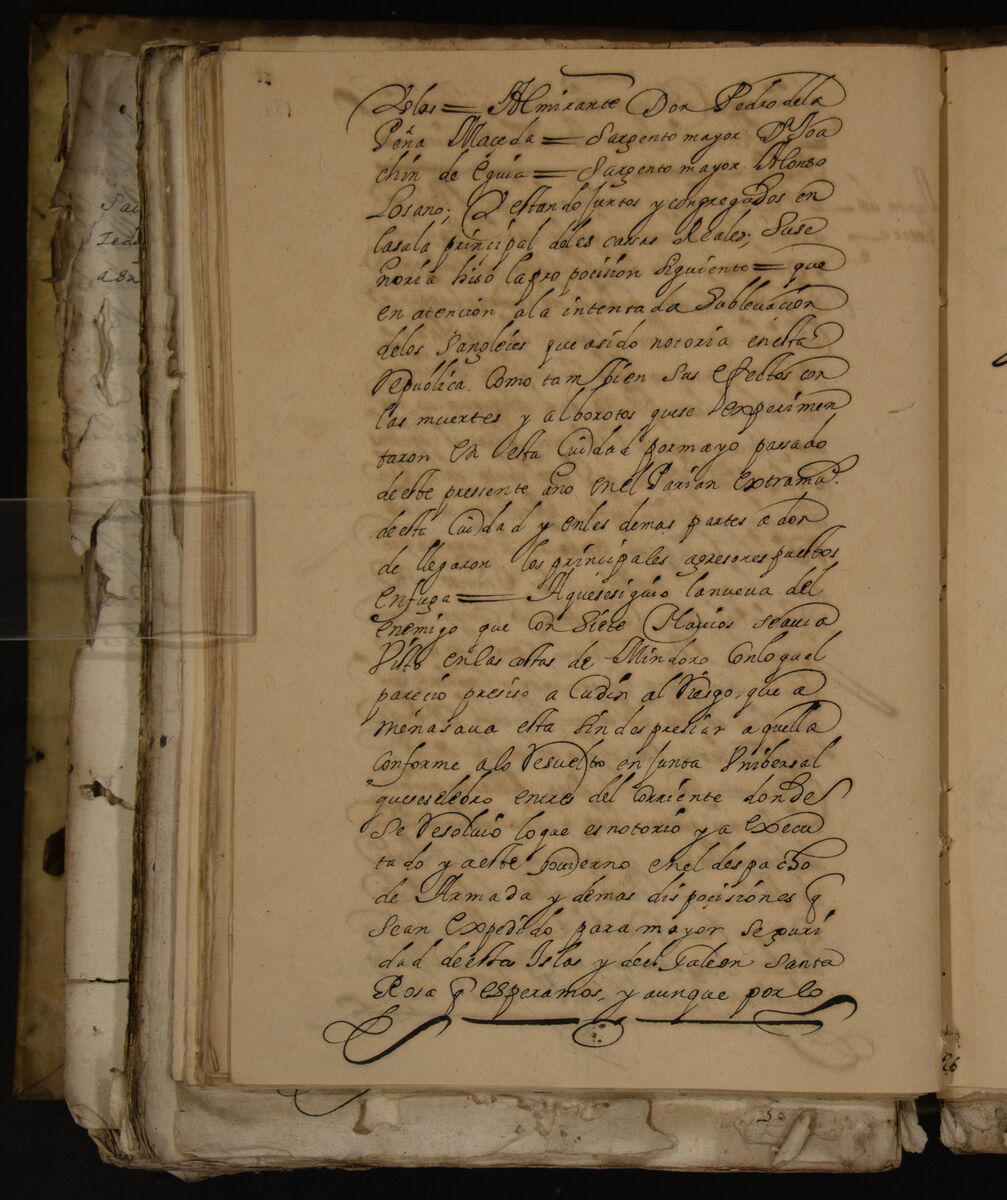 Yslas = Almirante Don Pedro dela
Peña Maceda = Sargento mayor Dn Joa
chin de Eguia = Sargento mayor Alonso
Losano; Y estando juntos y congregados en
lasala principal deles casas Reales; Suse
noria hiso lapro posision siguiente = que
en atencion ala intentada Sublevacion
delos Sangleies que asido notoria enesta
Republica Como tambien sus efectos con
las muertes y alborotos quese experimen
taron en esta Ciudad pormayo passado
deeste pressente año enel Parian extram.
deesta Ciudad y enles demas partes a don
de llegaron los principales agresores puestos
enfuga = Aquesesiguio lanueva del
enemigo que con Siete Navios seavia
Visto enlas costas de Mindoro Conloqual
parecio presiso a Cudir al Riesgo, que a
menasava esta sindespresiar aquella
Conforme alo Resuelto enjunta Vnibersal
quesecelebro entres del Corriente donde
Se Resolvio loque esnotorio y a execu
tado y aeste Govierno enel despacho
de Armada y demas disposisiones q
Sean expedido paramayor Seguri
dad deestas Islas y deel Galeon Santa
Rosa q esperamos, y aunque porlo
26